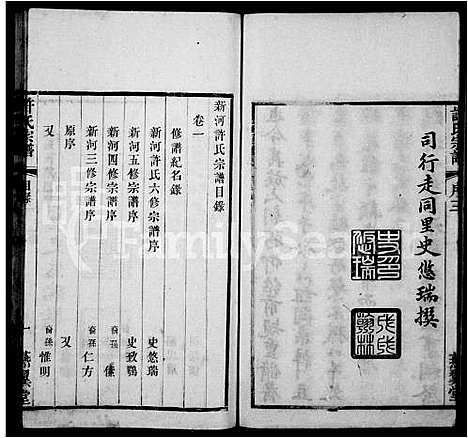 許氏宗譜
序三
司行走同里史悠瑞撰
新河許氏宗譜目錄
卷一
修譜紀名錄
新河許氏六修宗譜序
史悠瑞
新河五修宗譜序
史致鶚
新河四修宗譜序
裔孫
新河三修宗譜序
裔孫 仁方
原序
又
又
裔孫 惟明
許氏宗譜
目錄
一
FamilySearch